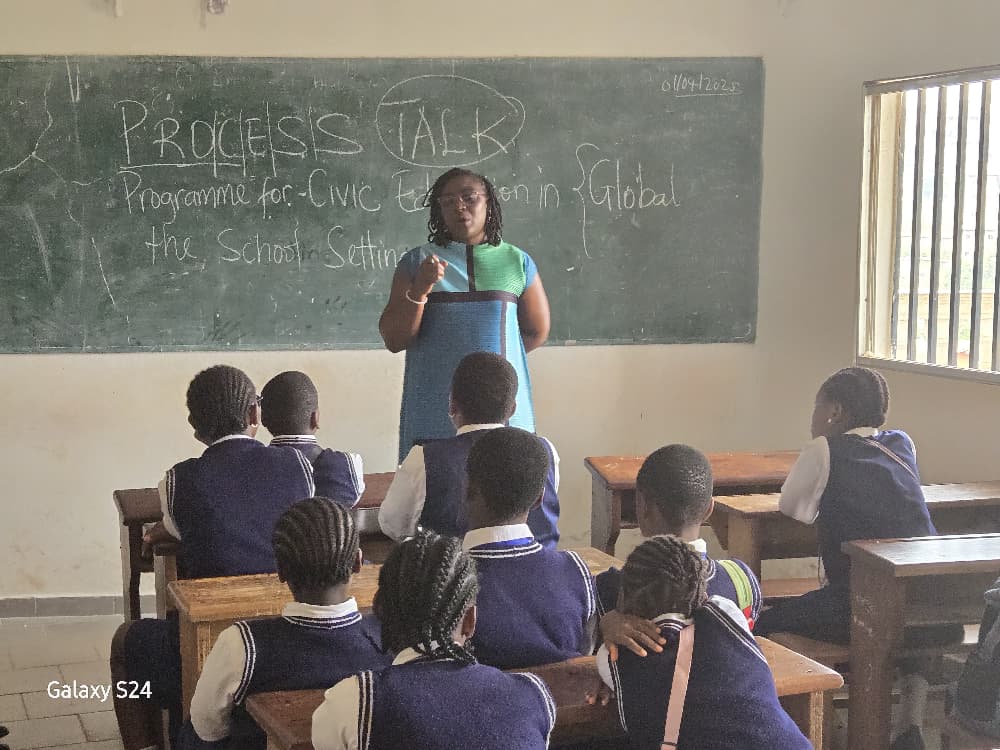 01/04/2025
PROCESS TALK
Programme for Civic Education in {Global
the School Setting
Galaxy S24